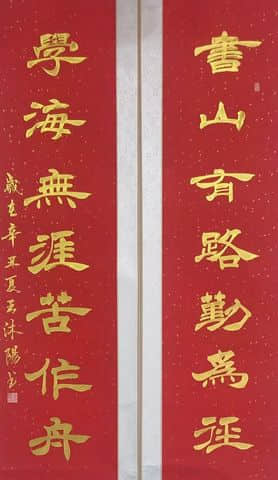 書山有路勤為徑
學海無涯苦作舟
歲在辛丑夏王沐陽書